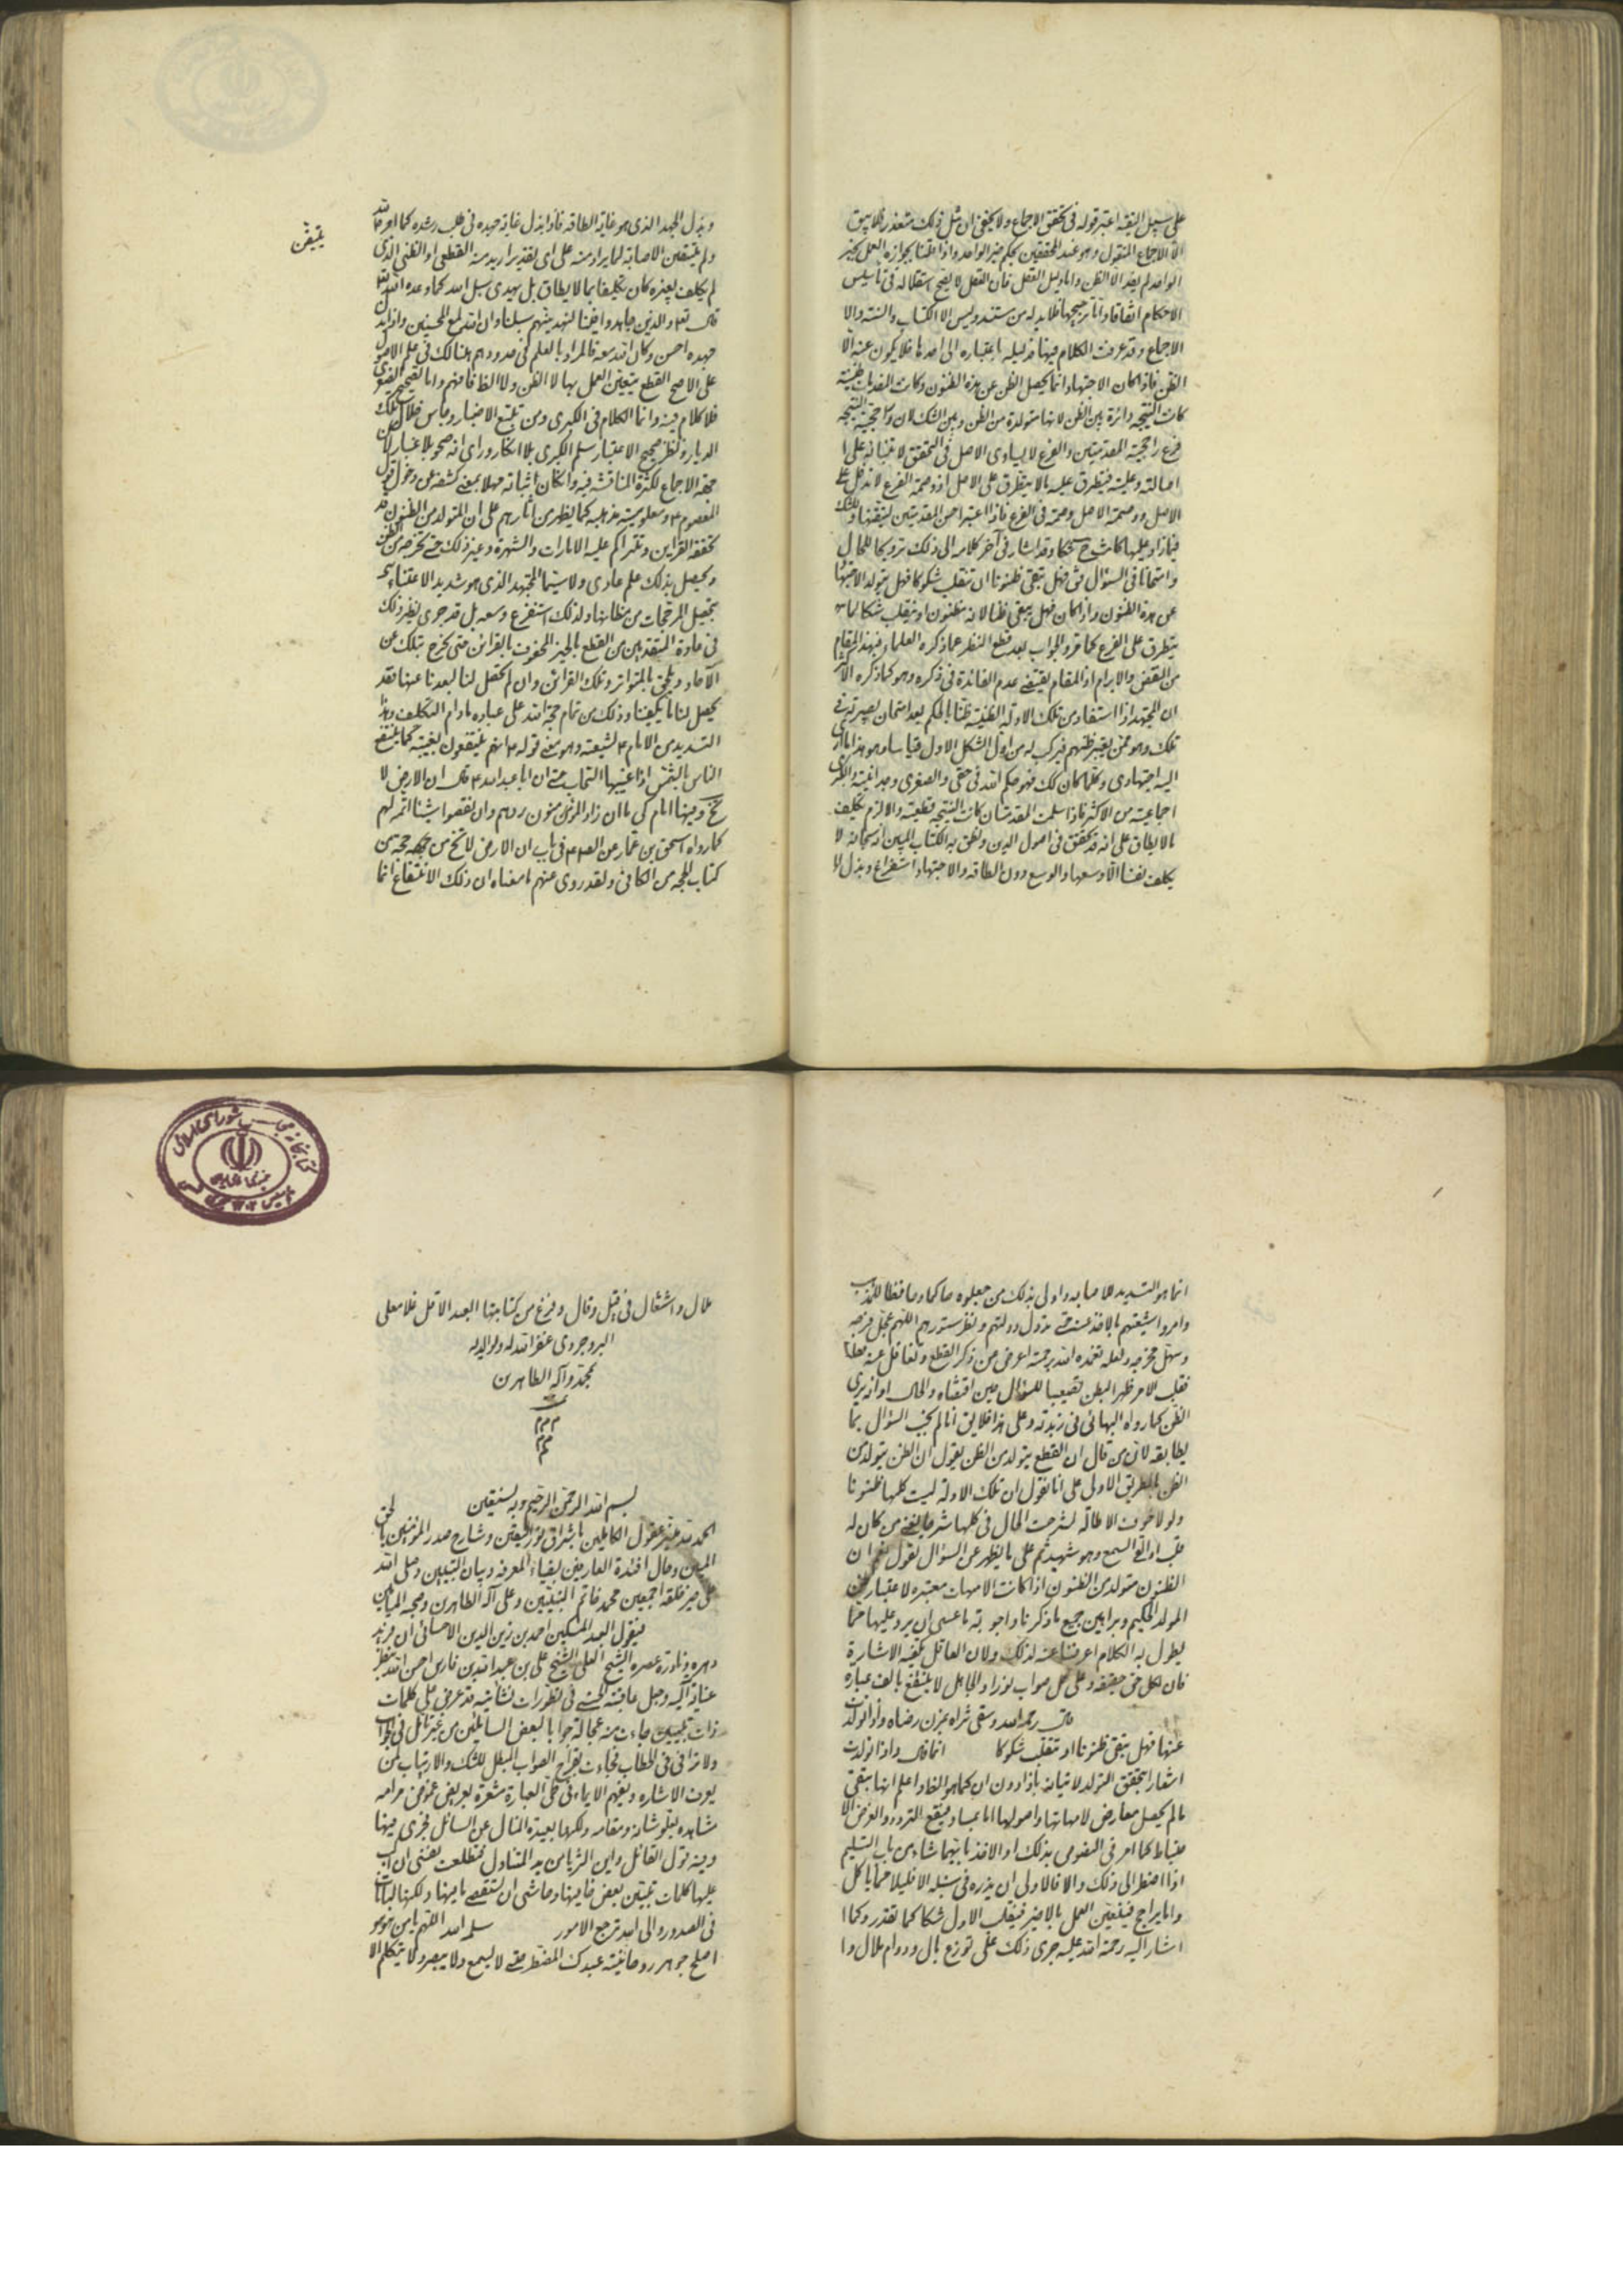 على سبيل النقية اعتبر قوله في تحقق الاجماع ولا يخفى ان مثل ذلك متعذر فلا يبق
الا الاجماع المنقول وهو عند المحققين بحكم خبر الواحد واذا قلنا بجوازه العمل بخبر
الواحد لم يفد الا الظن واما دليل العقل فان العقل لا يصح استقلاله في تأسيس
الاحكام اتفاقا واما ترجيحها فلا بد له من مستند وليس الا الكتاب والسنة والا
الاجماع وقد عرفت الكلام فيها فدليله باعتباره الى احدها فلا يكون عنه الا
الظن فاذا كان الاجتهاد انما يحصل الظن عن هذه الظنون وكانت المقدمات ظنية
كانت النتيجة دائرة بين الظن لانها متولدة من الظن وبين الشك لان حجية النتيجة
فرع حجية المقدمتين والفرع لا يساوى الاصل في التحقق لابتنائه على
اصالته وعليته فيتطرق عليه ما لا يتطرق على الاصل اذ وصمة الفرع لا تدخل على
الاصل ووصمة الاصل وصمة في الفرع فاذا اعتبر احسن المقدمتين لتيقنها والشك
فيما زاد عليها كانت شكا وقد اشار في آخر كلامه الى ذلك ترويجا للحال
وامتحانا في السؤال فقال فهل تبقى ظنونا ان تنقلب شكوكا فهل يتولد الاجتهاد
عن هذه الظنون واذا كان فهل يبقى ظنا لانه مظنون او ينقلب شكا لما
يتطرق على الفرع كما قرر والجواب بعد قطع النظر عما ذكره العلماء فهذه المقام
من النقض والابرام اذ المقام يقتضى عدم الفائدة في ذكره وهو كما ذكره الاكثر
ان المجتهد اذا استفاد من تلك الادلة الظنية ظنا بالحكم بعد امتحان بصيرته في
تلك وهو ممن يعتبر ظنهم فيركب له من اول الشكل الاول قياسا وهو هذا ما ادى
اليه اجتهادى وكلما كان كك فهو حكم الله في حقى والصغرى وجدانية والكبرى
اجماعية من الاكثر فاذا سلمت المقدمتان كانت النتيجة قطعية والا لزم تكليف
ما لا يطاق على انه قد تحقق في اصول الدين ونطق به الكتاب المبين انه سبحانه لا
يكلف نفسا الا وسعها والوسع دون الطاقة والاجتهاد استفراغ وبذل
وبذل الجهد الذى هو غاية الطاقة فاذا بذل غاية جهده في طلب رشده كما امره الله
ولم يتيقن الاصابة لما يراد منه على اى تقدير اريد منه القطعى او الظنى الذى
يتيقن
لم يكلف بغيره كان تكليفا بما لا يطاق بل يهدى سبل الله كما وعده الله
قال تعا والذين جاهدوا فينا لنهدينهم سبلنا وان الله لمع المحسنين واذا بذل
جهده احسن وكان الله معه فالمراد بالعلم في حدودهم هنالك في علم الاصول
على الاصح القطع يتعين العمل بها لا الظن ولا الظ فافهم واما
فلا كلام فيه وانما الكلام في الكبرى ومن تتبع الاخبار وجاس خلال تلك
الديار ونظر صحيح الاعتبار سلم الكبرى بلا انكار وراى انه صحو بلا غبار
حجة الاجماع لكثرة المناقشة فيه وان كان اثباته سهلا بمعنى كشفه عن دخول قول
المعصوم ع ومعلومية مذهبه كما يظهر من آثارهم على ان المتولد من الظنون قد
تحققه القراين وتتراكم عليه الامارات والشهرة وغير ذلك حتى تخرجه من الظن
ويحصل بذلك علم عادى ولا سيما المجتهد الذى هو شديد الاعتناء
بتحصيل المرجحات من مظانها ولذلك استفرغ وسعه بل قد جرى نظير ذلك
في مادة المتقدمين من القطع بالخبر المحفوف بالقرائن حتى يخرج بتلك عن
الآحاد ويلحق بالمتواتر وتلك القرائن وان لم تحصل لنا لبعدنا عنها فقد
يحصل لنا ما يكفينا وذلك من تمام حجة الله على عباده ما دام التكليف وهذا
التسديد من الامام ع لشيعته وهو معنى قوله ع انهم ينتفعون بغيبته كما ينتفع
الناس بالشمس اذا غيبها السحاب حتى ان ابا عبد الله ع قال ان الارض لا
تخ وفيها امام كى ما ان زاد المؤمنون ردهم وان نقصوا شيئا اتمه لهم
كما رواه اسحق بن عمار عن الصادق ع في باب ان الارض لا تخ من حجة من
كتاب الحجة من الكافى ولقد روى عنهم ما معناه ان ذلك الانتفاع انما
انما هو التسديد للاصابه واولى بذلك من جعلوه حاكما وحافظا للمذهب
وامروا شيعتهم بالاخذ عنه حتى تزول دولتهم ونظر مستورهم اللهم عجل فرجه
وسهل مخرجه ولعله تغمده الله برحمته اعرض عن ذكر القطع وتغافل عنه
فقلب للامر ظهر البطن تصعيبا للسؤال حين اقتضاه والحال او انه يرى
الظن كما رواه البهائى في زبدته وعلى هذا فلا يق انا لم نجب السؤال بما
يطابقه لان من قال ان القطع يتولد من الظن يقول ان الظن يتولد من
الظن بالطريق الاولى على انا نقول ان تلك الادلة ليست كلها ظنونا
ولولا خوف الاطالة لشرحت الحال في كلها شرحا يغنى من كان له
قلب او القى السمع وهو شهيد ثم على ما يظهر عن السؤال نقول نعم ان
الظنون متولد من الظنون اذا كانت الامهات معتبرة لاعتبار
المولد الحكيم وبراهين جميع ما ذكرنا واجوبة ما عسى ان يرد عليها مما
يطول به الكلام اعرضنا عنه لذلك ولان العاقل تكفيه الاشارة
فان لكل حق حقيقة وعلى كل صواب نورا والجاهل لا ينتفع بالف عبارة
قال رحمه الله وسقى ثراه بمزن رضاه واذا تولدت
عنها فهل تبقى ظنونا او تنقلب شكوكا انما قال واذا تولدت
اشعارا بتحقق التولد لاتيانه باذا دون ان كما هو الظ واعلم انها تبقى
ما لم يحصل معارض لامهاتها واصولها اما بمساو فيقع التردد والفرض الا
حتياط كما امر في النصوص بذلك او الاخذ بايهما شاء من باب التسليم
اذا اضطر الى ذلك والا فالاولى ان يذره في سنبله الا قليلا مما ياكل
واما براجح فيتعين العمل بالاخير فينقلب الاول شكا كما تقدر وكما
اشار اليه رحمة الله عليه جرى ذلك على توزع بال ودوام ملال وا
ملال واشتغال في قيل وقال وفرغ من كتابتها العبد الاقل غلامعلى
البروجردى غفر الله له ولوالديه
بمحمد وآله الطاهرين
تمت
م م م
م م
بسم الله الرحمن الرحيم وبه نستعين
الحمد لله منير عقول الكاملين باشراق نور اليقين وشارح صدر المؤمنين بالحق
المبين وجال افئدة العارفين بضياء المعرفة وبيان التبيين وصلى الله
على خير خلقه اجمعين محمد خاتم النبيين وعلى آله الطاهرين وصحبه الميامين
فيقول العبد المسكين احمد بن زين الدين الاحسائى ان فريد
دهره ونادرة عصره الشيخ العلى الشيخ على بن عبد الله بن فارس احسن الله بنظر
عنايته اليه وجعل عاقبته الحسنى في تطورات نشأتيه قد عرض على كلمات
ذات تبيين جاءت منه عجالة جوابا لبعض السائلين من غير تأمل في الجواب
ولا تراخى في الخطاب فجاءت بقراح الصواب المبطل للشك والارتياب لمن
يعرف الاشاره ويفهم الايماء في طى العبارة مشعرة بعريض غوامض مرامه
مشاهده بعلو شانه ومقامه ولكنها بعيدة المنال عن السائل فجرى فيها
وفيه قول القائل واين الثريا من يد المتناول فتطلعت نفسى ان اكتب
عليها كلمات تبين بعض خافيها وحاشى ان تستقصى ما فيها ولكنها لبانات
في الصدور والى الله ترجع الامور سلمه الله اللهم يا من هو هو
اصلح جوهر روحانية عبدك المضطر حتى لا يسمع ولا يبصر ولا يتكلم الا